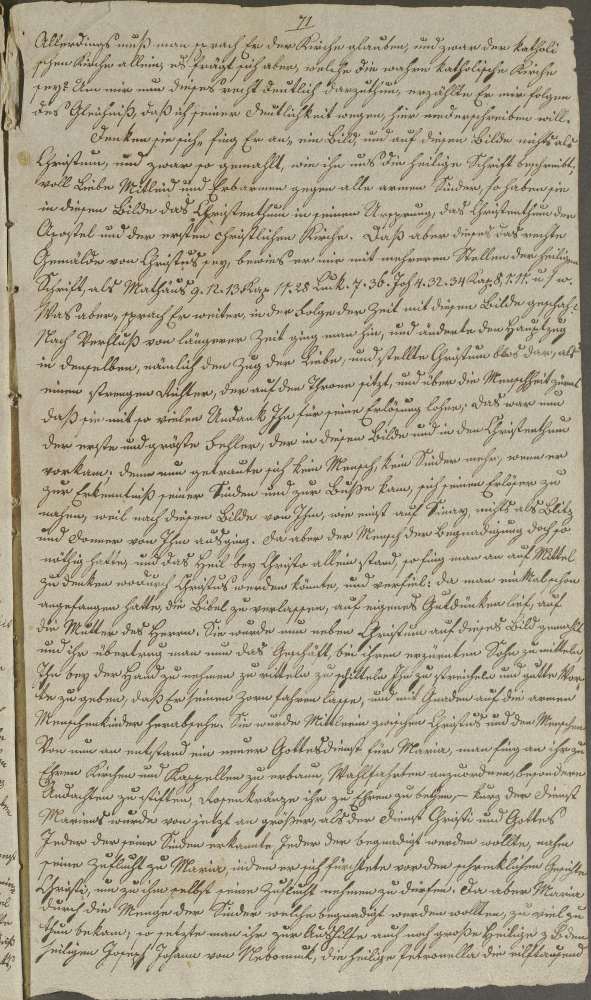 71
Allerdings muß man sprach Er der Kirche glauben, und zwar der katholi
schen Kirche allein, es frägt sich aber, welche die wahre katholische Kirche
sey? Um mir nun dieses recht deutlich darzuthun, erzählte Er mir folgen
des Gleichniß, daß ich seiner Deutlichkeit wegen, hier niederschreiben will.
Denken sie sich, fing Er an, ein Bild, und auf diesem Bilde nichts als
Christum, und zwar so gemahlt, wie ihn uns die heilige Schrift beschreibt,
voll Liebe Mitleid und Erbarmen gegen alle armen Sünder, so haben sie
in diesem Bilde das Christenthum in seinem Ursprung, das Christenthum der
Apostel und der ersten christlichen Kirche. Daß aber dieses das rechte
Gemälde von Christus sey, bewies er mir mit mehreren Stellen der heiligen
Schrift, als Mathäus 9. 12. 13. Kap 11. 28 Luk. 7. 36. Joh 4. 32. 34 Kap 8, 7. 11. u. s. w.
Was aber, sprach Er weiter, in der Folge der Zeit mit diesem Bilde geschah?
Nach Verfluß von längerer Zeit ging man hin, und änderte den Hauptzug
in demselben, nämlich den Zug der Liebe, und stellte Christum blos dar, als
einen strengen Richter, der auf dem Throne sitzt, und über die Menschheit zürnt
daß sie mit so vielen Undank Ihn für seine Erlösung lohne; das war nun
der erste und gröste Fehler, der in diesem Bilde und in dem Christenthum
vorkam; denn nun getraute sich kein Mensch, kein Sünder mehr, wenn er
zur Erkenntniß seiner Sünden und zur Buße kam, sich seinem Erlöser zu
nahen, weil nach diesem Bilde von Ihm, wie einst auf Sinay nichts als Blitz
und Donner von Ihm ausging. Da aber der Mensch der Begnadigung doch so
nöthig hatte, und das Heil bey Christo allein stand, so fing man an auf Mittel
zu denken wodurch Christus werden könnte, und verfiel; da man einmal schon
angefangen hatte, die Bibel zu verlassen, auf eigenes Gutdünken lief, auf
die Mutter des Herrn. Sie wurde nun neben Christum auf dieses Bild gemahlt
und ihr übertrug man nun das Geschäft, bei ihrem erzürnten Sohn zu mitteln,
Ihn bey der Hand zu nehmen zu Ihn zu streicheln und gutte Wor
te zu geben, daß Er seinen Zorn fahren lasse, und mit Gnaden auf die armen
Menschenkinder herabsehe. Sie wurde Mittlerin zwischen Christus und den Menschen
Von nun an entstand ein neuer Gottesdienst für Maria, man fing an ihr zu
Ehren Kirchen und Kappellen zu erbaun, Wahlfahrten anzuordnen, besondere
Andachten zu stiften, Rosenkränze ihr zu Ehren zu bethen, – kurz der Dienst
Mariens wurde von jetzt an größer, als der Dienst Christi und Gottes
Jeder der seine Sünden erkannte Jeder der begnadigt werden wollte, nahm
seine Zuflucht zu Maria, indem er sich fürchtete vor dem schrecklichen Gesichte
Christi, und zu ihm selbst seine Zuflucht nehmen zu dürfen. Da aber Maria
durch die Menge der Sünder welche begnadigt werden wollten, zu viel zu
thun bekam, so setzte man ihr zur Aushilfe auch noch große Heilige z. B. den
heiligen Joseph, Johann von Nebomuk, die heilige Petronella die eilftausend